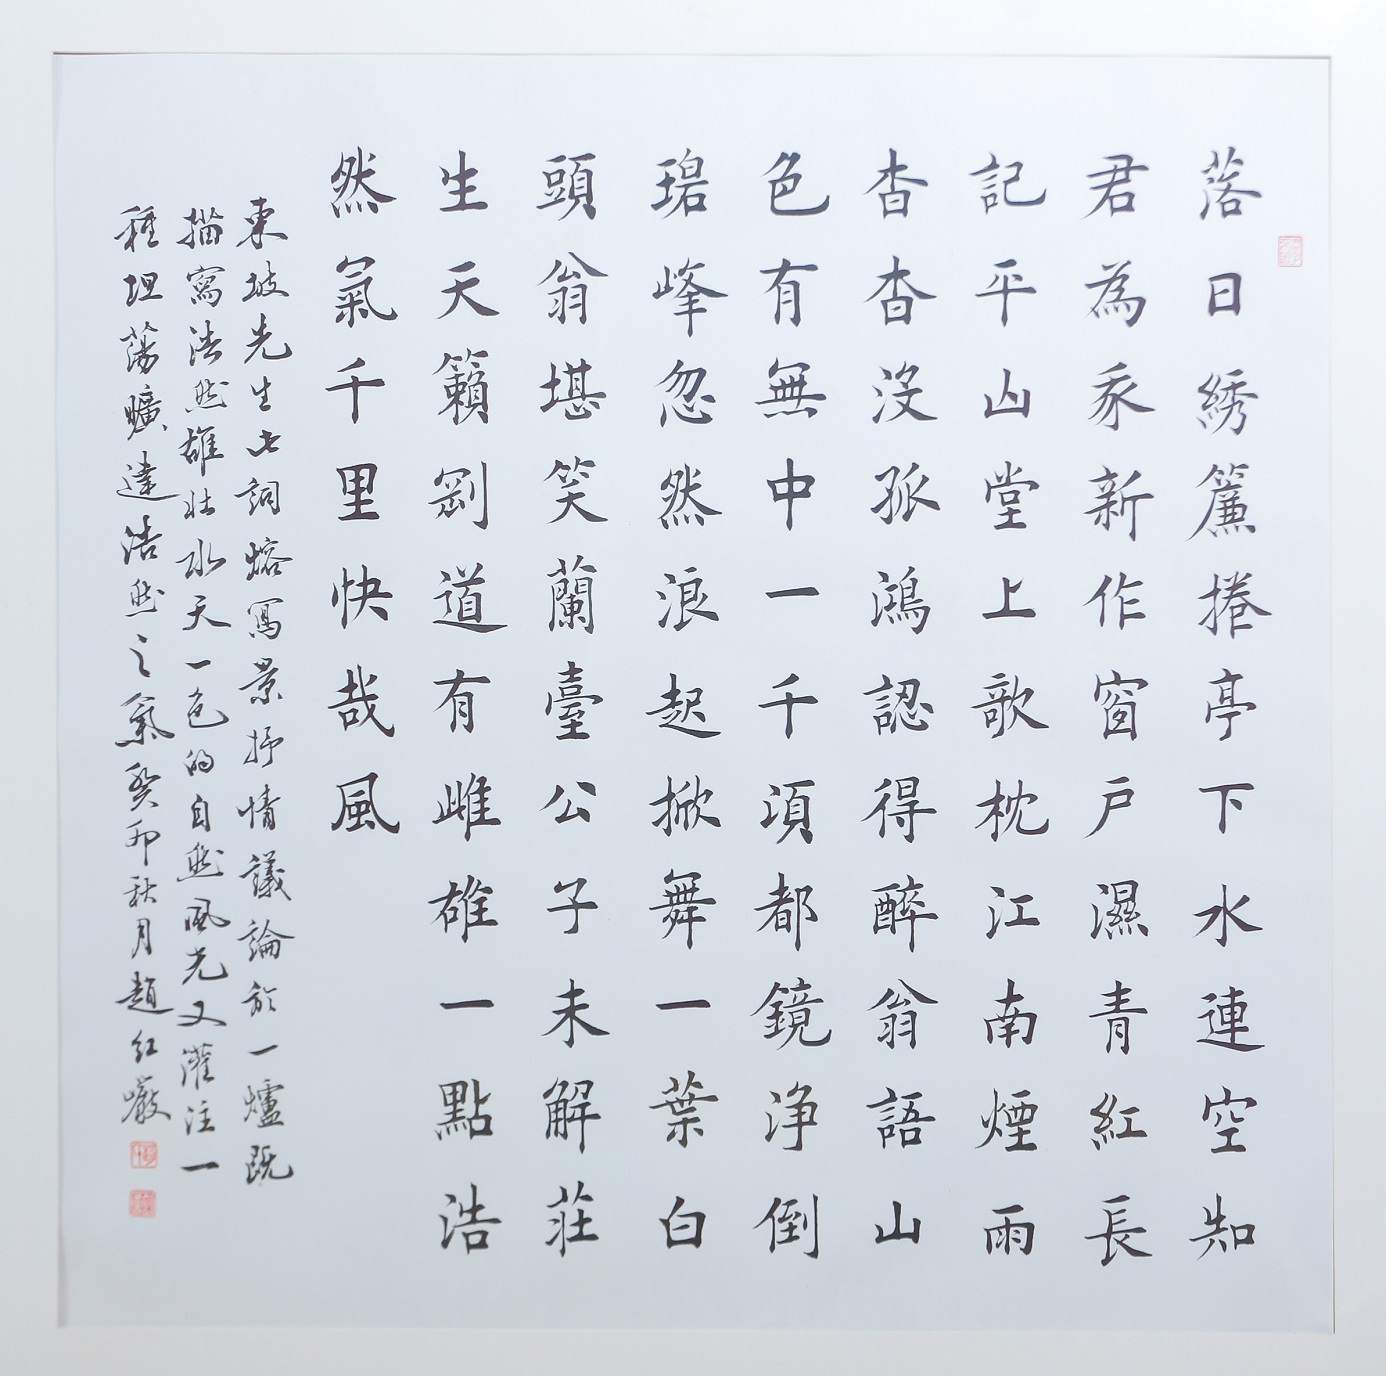 落日綉簾捲亭下水連空知
君為我新作窗戶濕青紅長
記平山堂上歌枕江南煙雨
杳杳沒孤鴻認得醉翁語山
色有無中一千頃都鏡淨倒
碧峰忽然浪起掀舞一葉白
頭翁堪笑蘭臺公子未解莊
生天籟剛道有雌雄一點浩
然氣千里快哉風
東坡先生此詞熔寫景抒情議論於一爐既
描寫浩然雄壯水天一色的自然風光又灌注一
種坦蕩曠達浩然之氣癸卯秋月趙紅巖